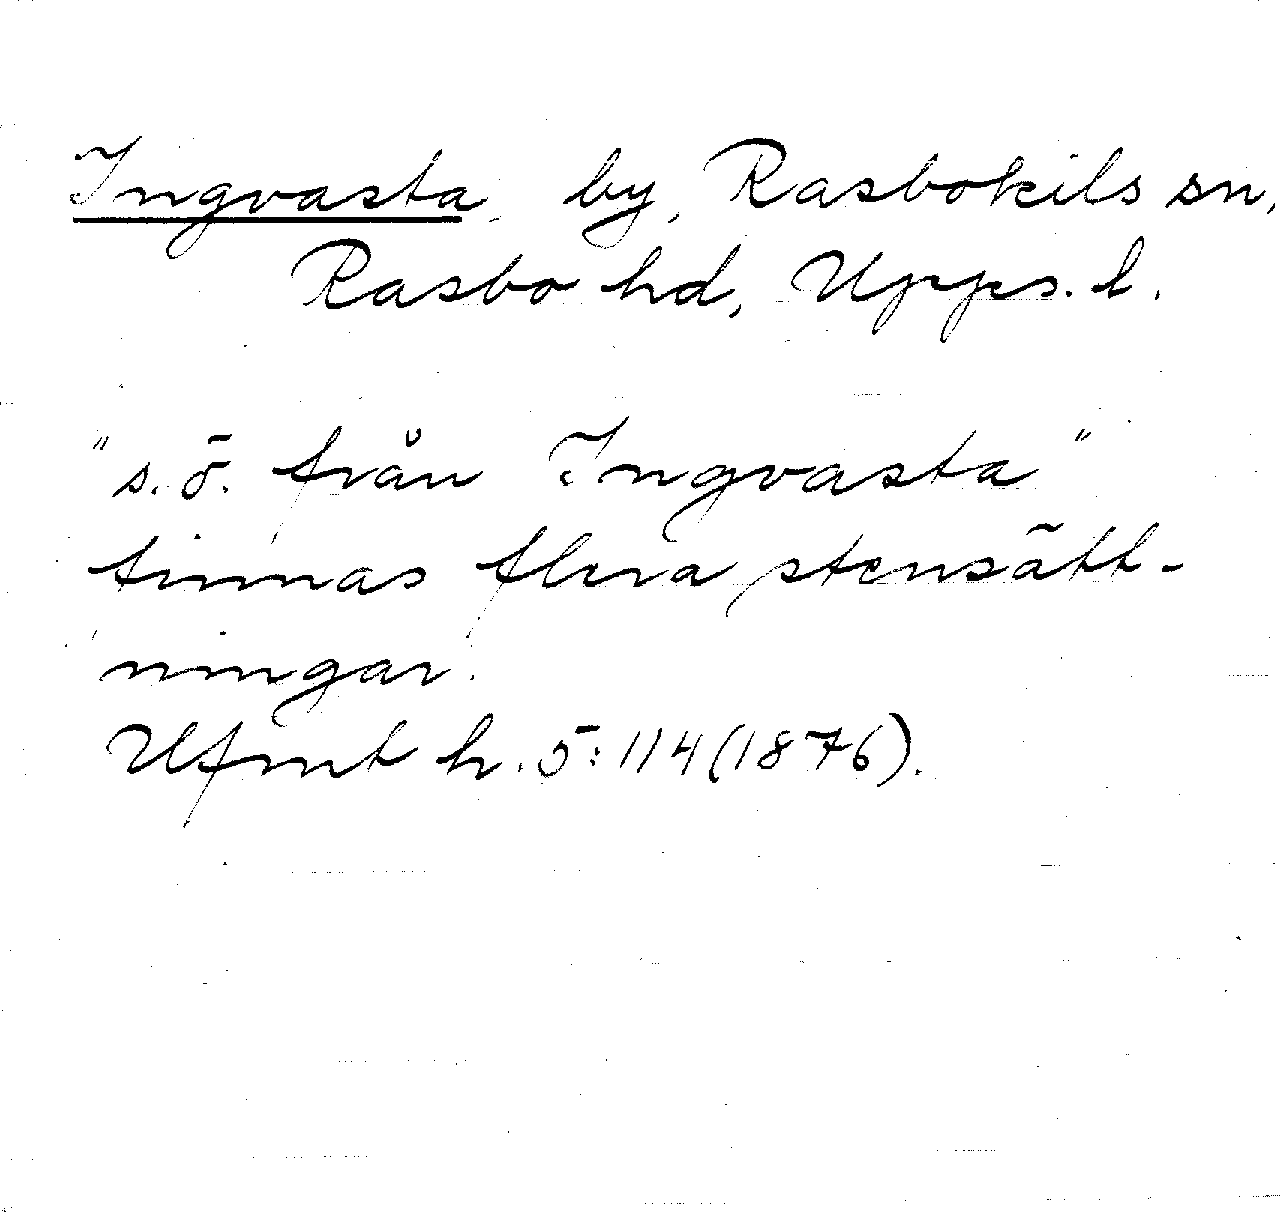 Ingvasta, by, Rasbokils sn,
Rasbo hd, Upps. l.
"s.ö. från Ingvasta"
finnas flera stensätt-
ningar.
Ufmt h. 5:114(1876).